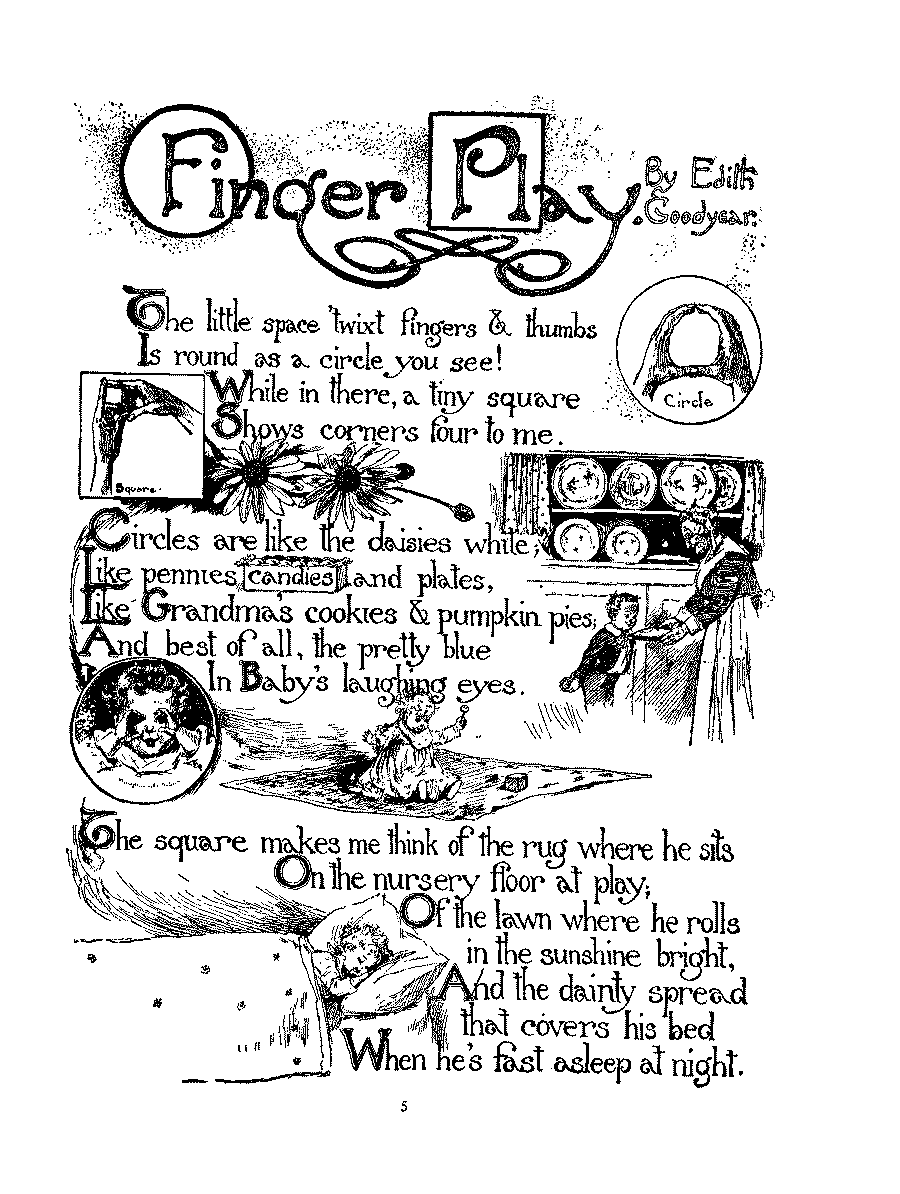 Finger Play
By Edith
Goodyear.
The little space 'twixt fingers & thumbs
Is round as a circle you see!
While in there, a tiny square
Shows corners four to me.
Circle
Square.
Circles are like the daisies white;
Like pennies, candies, and plates,
Like Grandma's cookies & pumpkin pies;
And best of all, the pretty blue
In Baby's laughing eyes.
The square makes me think of the rug where he sits
On the nursery floor at play;
Of the lawn where he rolls
in the sunshine bright,
And the dainty spread
that covers his bed
When he's fast asleep at night.
5